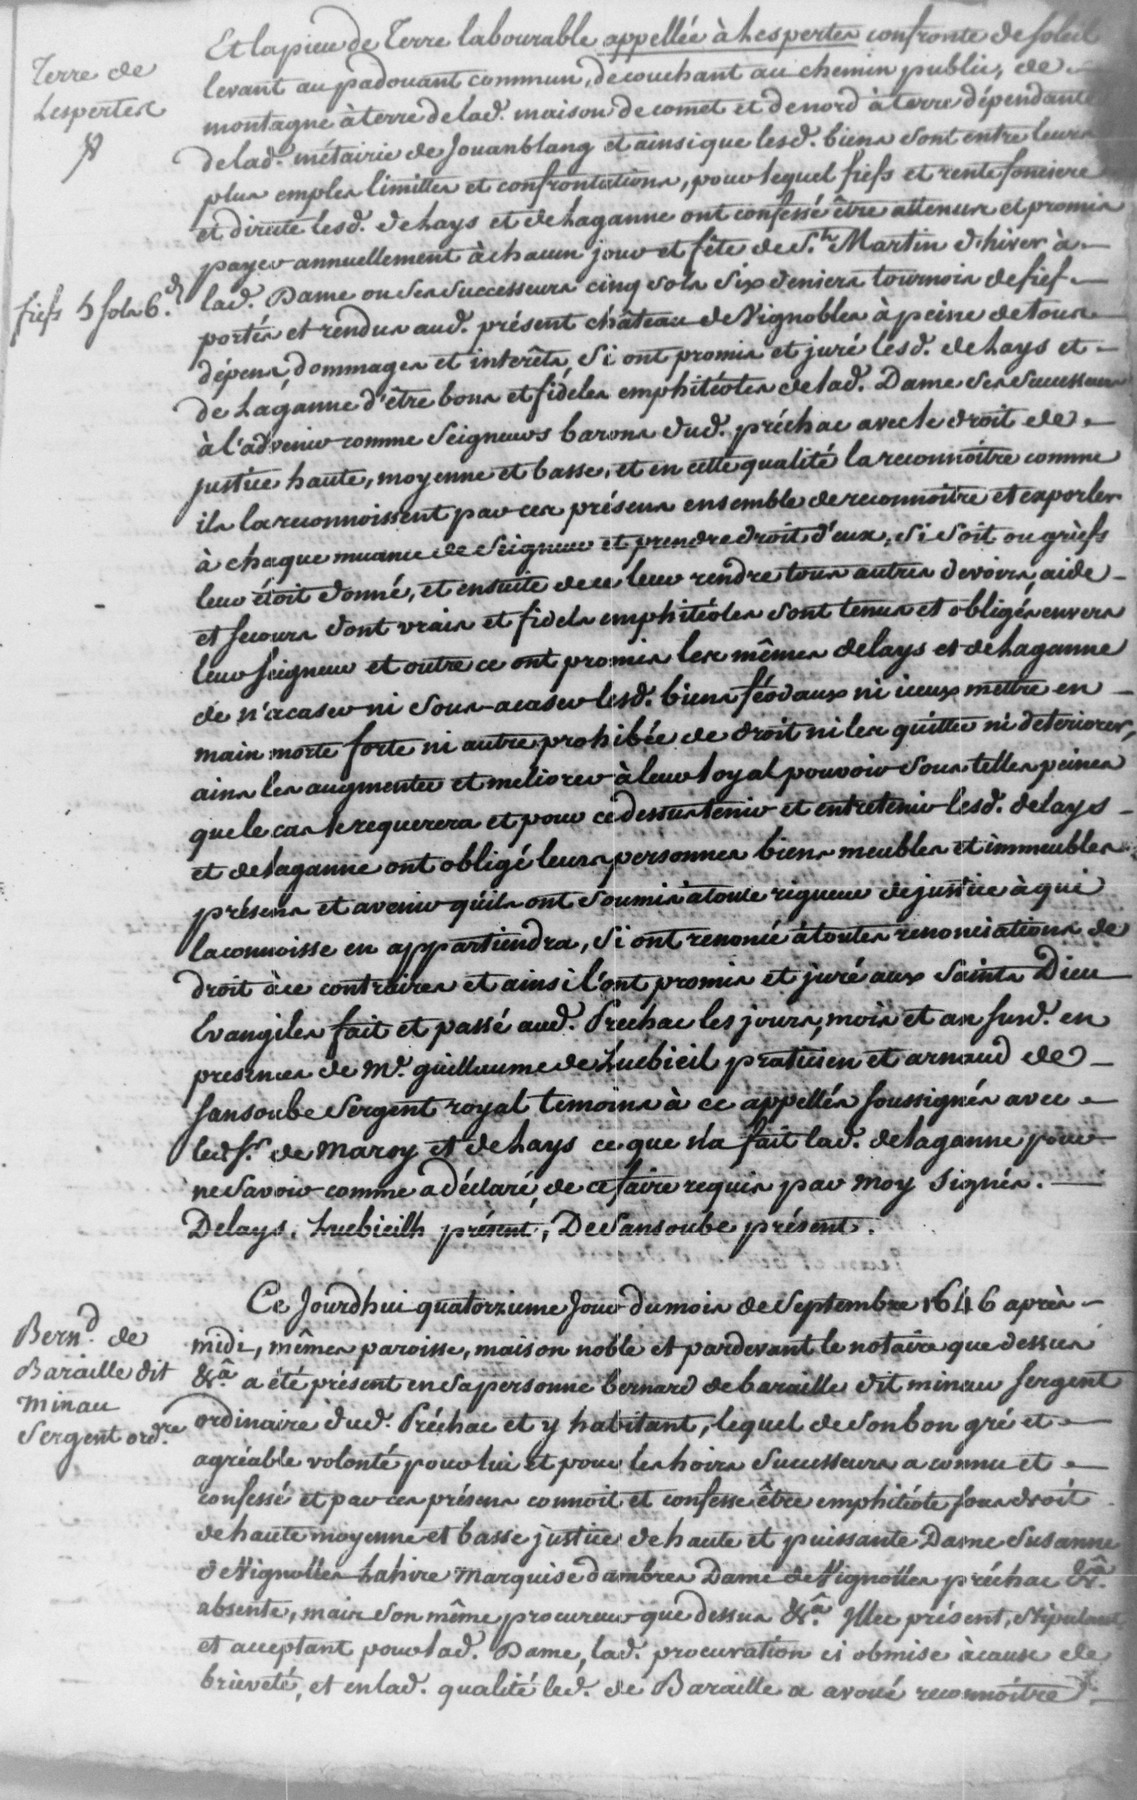 Terre de
Lespertes
Et la piece de Terre labourable appellée à Lespertes confronte de soleil
levant au padouant commun, de couchant au chemin public, de
montagne à terre de lad. maison de comet et de nord à terre dépendante
de lad. métairie de Jouanblang et ainsi que lesd. biens sont entre leurs
plus emples limittes et confrontations, pour lequel fiefs et rente fonciere
et directe lesd. delays et de Laganne ont confessé être attenus et promis
payer annuellement à chacun jour et fête de St. Martin d'hiver à
fiefs 5 sols 6 d.
lad. Dame ou ses successeurs cinq sols six deniers tournois de fief
portés et rendus aud. présent château de Vignobles à peine de tous
dépens, dommages et interêts, Si ont promis et juré lesd. delays et
de Laganne d'être bons et fidéles emphitéotes de lad. Dame ses successeurs
à l'advenir comme Seigneurs barons dud. préchac avec le droit de
justice haute, moyenne et basse, et en cette qualité la reconnoitre comme
ils la reconnoissent par ces présens ensemble de reconnoitre et exporler
à chaque muance de Seigneur et prendre droit d'eux, Si soit ou griefs
leur étoit donné, et ensuite de ce leur rendre tous autres devoirs, aide
et secours dont vrais et fidels emphitéotes sont tenus et obligés envers
leur seigneur et outre ce ont promis les mêmes delays et de Laganne
de n'acaser ni sous-acaser lesd. biens féodaux ni iceux mettre en
main morte forte ni autre prohibée de droit ni les quitter ni deteriorer,
ains les augmenter et meliorer à leur loyal pouvoir sous telles peines
que le cas le requerera et pour ce dessus tenir et entretenir lesd. delays
et delaganne ont obligé leurs personnes biens meubles et immeubles
présens et avenir qu'ils ont soumis à toute rigueur de justice à qui
la connoisse en appartiendra, Si ont renoncé à toutes renonciations de
droit à ce contraires et ainsi l'ont promis et juré aux Saints Dieu
Evangiles fait et passé aud. Prechac les jours, mois et an susd. en
presences de Mr. guillaume de Lucbieil praticien et arnaud de
Sansoube Sergent royal temoins à ce appellés soussignés avec
led. Sr. de Marsy et delays ce que n'a fait lad. delaganne pour
ne savoir comme a déclaré, de ce faire requis par moy signés.
Delays, Lucbieilh présent, De Sansoube présent.
Bernd. de
Baraille dit
minau
Sergent ordre.
Ce Jourdhui quatorzieme Jour du mois de Septembre 1646 après
midi, mêmes paroisse, maison noble et pardevant le notaire que dessus
&a. a été présent en sa personne bernard de baraille dit minau sergent
ordinaire dud. Préchac et y habitant, lequel de son bon gré et
agréable volonté pour lui et pour les hoirs successeurs a connu et
confessé et par ces présens connoit et confesse être emphitéote sous droit
de haute moyenne et basse justice de haute et puissante Dame Susanne
de Vignolles Lahire Marquise dambres Dame de Vignolles préchac &a.
absente, mais son même procureur que dessus &a. Illec présent, stipulant
et acceptant pour lad. Dame, lad. procuration ci obmise à cause de
brieveté, et en lad. qualité led. de Baraille a avoué reconnoitre